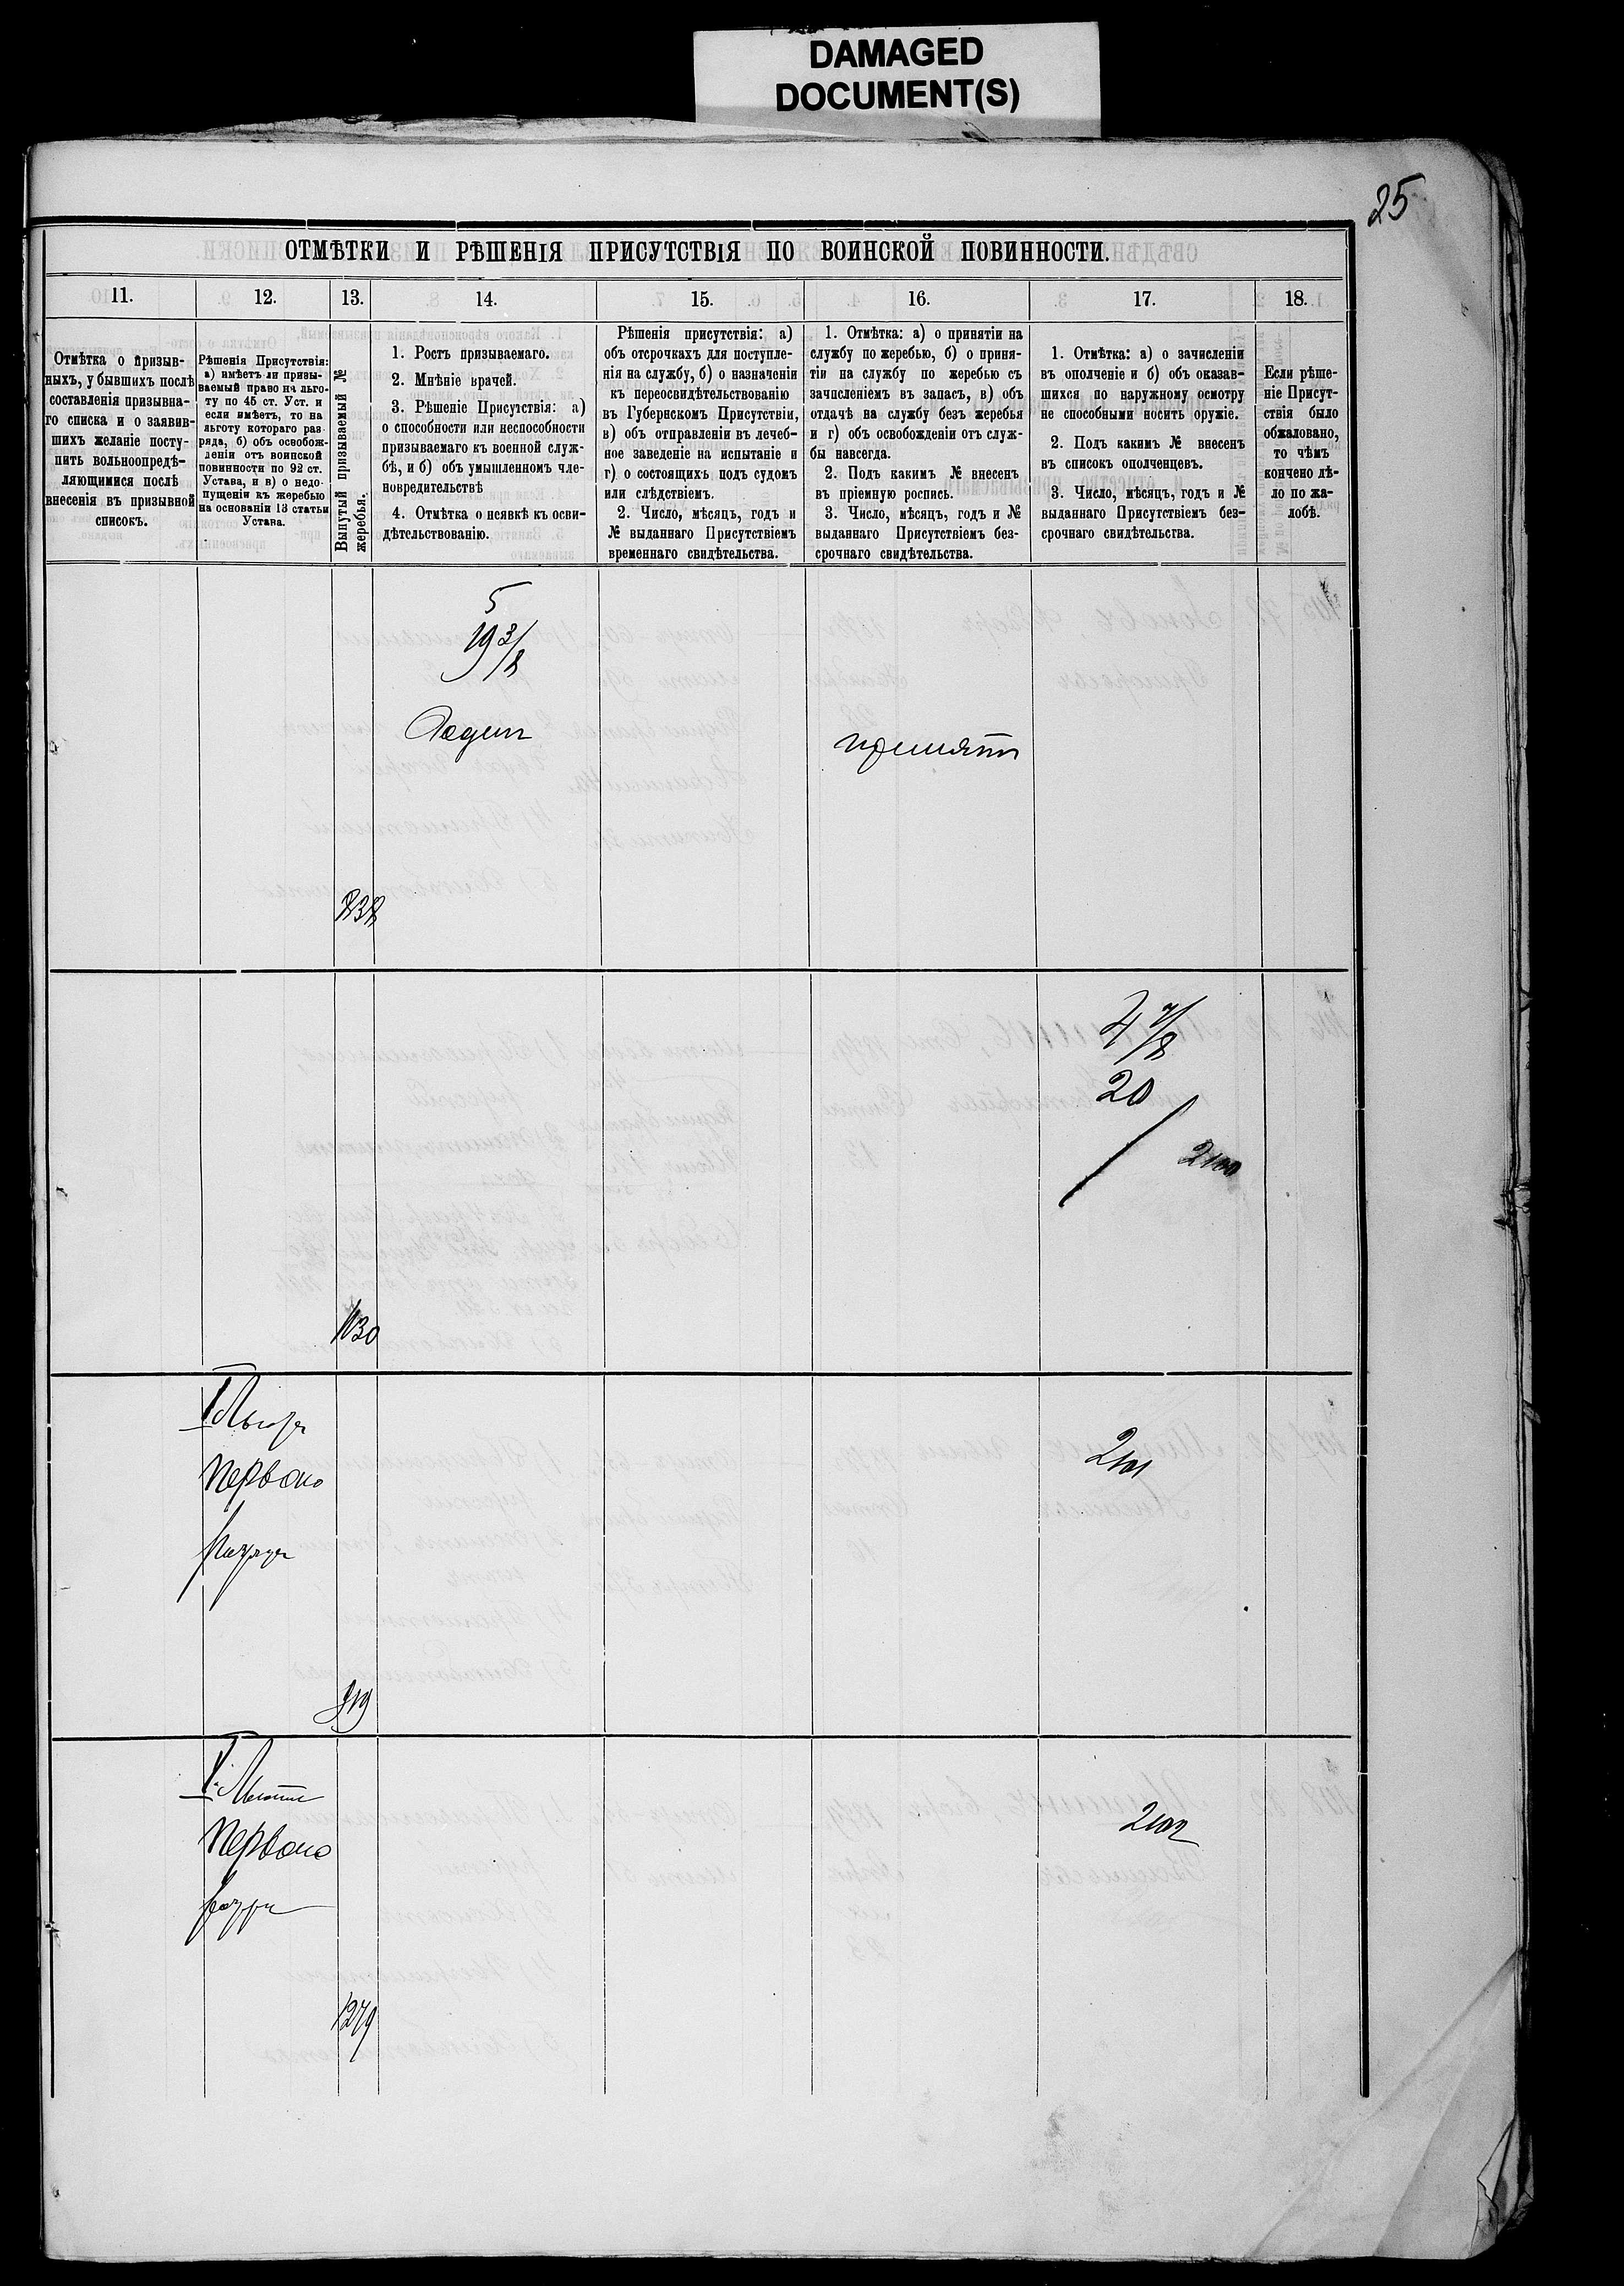 DAMAGED
DOCUMENT(S)
25
ОТМѢТКИ И РѢШЕНІЯ ПРИСУТСТВІЯ ПО ВОИНСКОЙ ПОВИННОСТИ.
11. 12. 13. 14. 15. 16. 17. 18.
Отмѣтка о призыв-
ныхъ, у бывшихъ послѣ
составленія призывна-
го списка и о заявив-
шихъ желаніе посту-
пить вольноопредѣ-
ляющимися послѣ
внесенія въ призывной
списокъ.
Рѣшенія Присутствія:
а) имѣетъ ли призы-
ваемый право на льго-
ту по 45 ст. Уст. и
если имѣетъ, то на
льготу котораго раз
ряда, б) объ освобож-
деніи отъ воинской
повинности по 92 ст.
Устава, и в) о недо-
пущеніи къ жеребью
на основаніи 13 статьи
Устава.
Вынутый призываемый №
жеребья.
1. Ростъ призываемаго.
2. Мнѣніе врачей.
3. Рѣшеніе Присутствія: а)
о способности или неспособности
призываемаго къ военной служ-
бѣ, и б) объ умышленномъ чле-
новредительствѣ
4. Отмѣтка о неявкѣ къ осви-
дѣтельствованію.
Рѣшенія присутствія: а)
объ отсрочкахъ для поступле-
нія на службу, б) о назначеніи
къ переосвидѣтельствованію
въ Губернскомъ Присутствіи,
в) объ отправленіи въ лечеб-
ное заведеніе на испытаніе и
г) о состоящихъ подъ судомъ
или слѣдствіемъ.
2. Число, мѣсяцъ, годъ и
№ выданнаго Присутствіемъ
временнаго свидѣтельства.
1. Отмѣтка: а) о принятіи на
службу по жеребью, б) о приня-
тіи на службу по жеребью съ
зачисленіемъ въ запасъ, в) объ
отдачѣ на службу безъ жеребья
и г) объ освобожденіи отъ служ-
бы навсегда.
2. Подъ какимъ № внесенъ
въ пріемную роспись.
3. Число, мѣсяцъ, годъ и №
выданнаго Присутствіемъ без-
срочнаго свидѣтельства.
1. Отмѣтка: а) о зачисленіи
въ ополченіе и б) объ оказав-
шихся по наружному осмотру
не способными носить оружіе.
2. Подъ какимъ № внесенъ
въ списокъ ополченцевъ.
3. Число, мѣсяцъ, годъ и №
выданнаго Присутствіемъ без-
срочнаго свидѣтельства.
Если рѣше-
ніе Присут-
ствія было
обжаловано,
то чѣмъ
кончено дѣ-
ло по жа-
лобѣ.
5
19 3/8
Годенъ
принятъ
838
4 7/8
20
2100
1030
I
перваго
2101
919
I
перваго
2102
1279